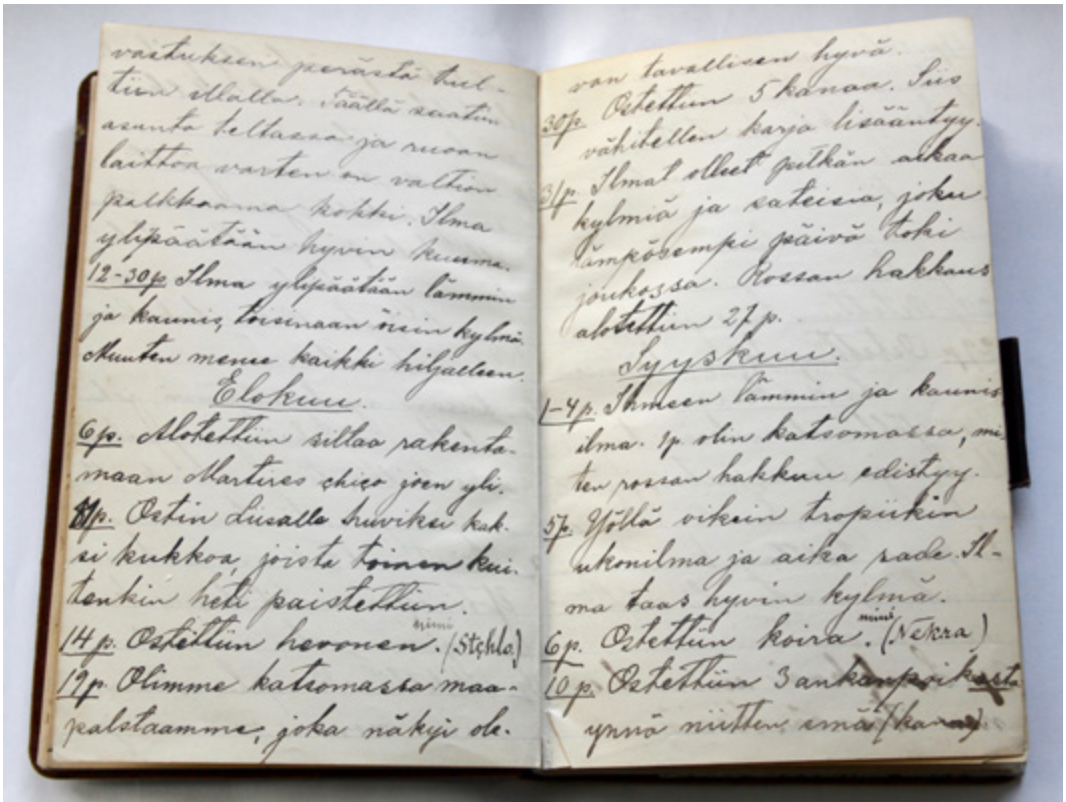 vastuksen perästä tul-
tiin illalla. Täällä saatiin
asunto teltassa ja ruoan
laittoa varten on valtion
palkkaama kokki. Ilma
ylipäätään hyvin kuuma.
12-30p. Ilma ylipäätään lämmin
ja kaunis, toisinaan öisin kylmä.
Muuten menee kaikki hiljalleen.
Elokuu.
6p. Alotettiin siltaa rakenta-
maan Martires chico joen yli.
11p. Ostin Liisalle huviksi kak-
si kukkoa, joista toinen kui-
tenkin heti paistettiin.
nimi
14 p. Ostettiin hevonen. (Stchlo.)
19p. Olimme katsomassa maa-
palstaamme, joka näkyi ole-
van tavallisen hyvä.
30p. Ostettiin 5 kanaa. Siis
vähitellen karja lisääntyy.
31p. Ilmat olleet pitkän aikaa
kylmiä ja sateisia, joku
lämpösempi päivä toki
joukossa. Rossan hakkaus
alotettiin 27 p.
Syyskuu.
1-4p. Ihmeen lämmin ja kaunis
ilma. 1p. olin katsomassa, mi-
ten rossan hakkuu edistyy.
5p. Yöllä oikein tropiikin
ukonilma ja aika sade. Il-
ma taas hyvin kylmä.
nimi
6p. Ostettiin koira. (Nekra)
10p. Ostettiin 3 ankanpoikasta
ynnä niitten emä (kanas)